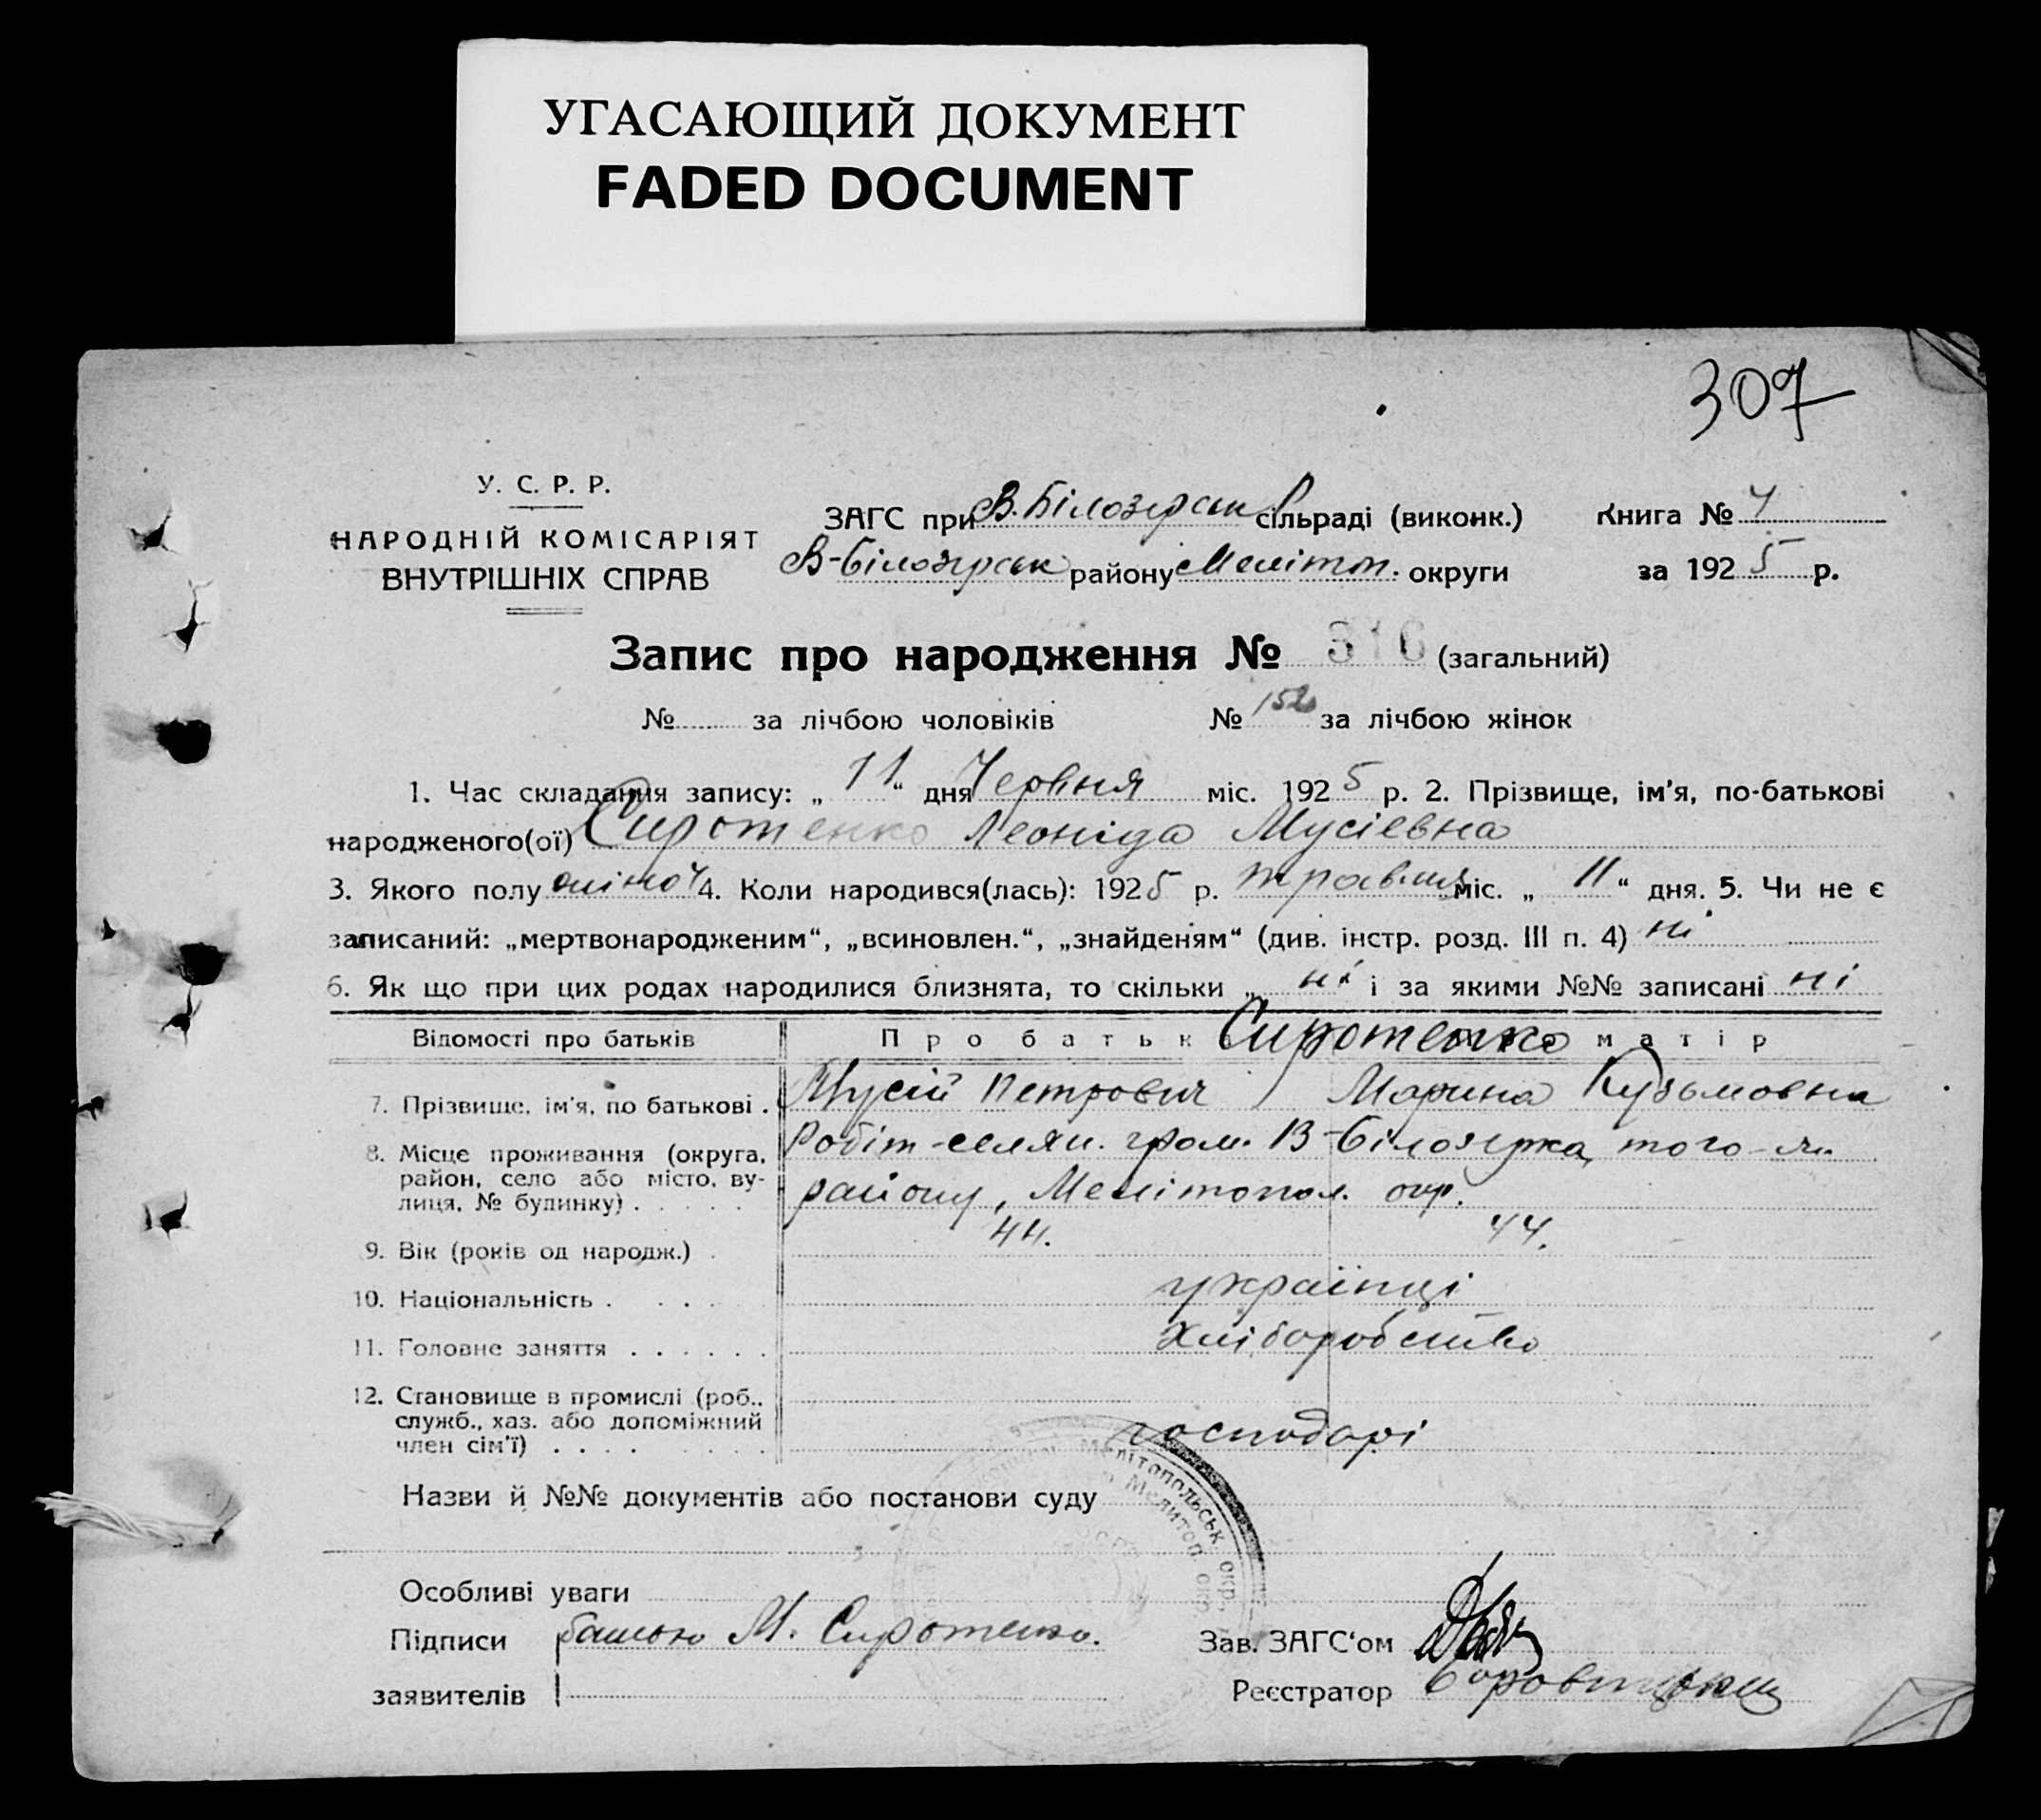 УГАСАЮЩИЙ ДОКУМЕНТ
FADED DOCUMENT
307
У. С. Р. Р.
НАРОДНІЙ КОМІСАРІЯТ
ВНУТРІШНІХ СПРАВ
ЗАГС при В. Білозерськ сільраді (виконк.)
В-Білозерськ району Мелітоп. округи
Книга №
за 1925 р.
Запис про народження № 316 (загальний)
№ за лічбою чоловіків № 152 за лічбою жінок
1. Час складання запису: „11“ дня Червня міс. 1925 р. 2. Прізвище, ім'я, по-батькові
народженого(ої) Сиротенко Леоніда Мусіевна
3. Якого полу жіноч 4. Коли народився(лась): 1925 р. травня міс. „11“ дня. 5. Чи не є
записаний: „мертвонародженим“, „всиновлен.“, „знайденям“ (див. інстр. розд. III п. 4) ні
6. Як що при цих родах народилися близнята, то скільки „ ні і за якими №№ записані ні
Відомості про батьків Про батьк Сиротенко матір
7. Прізвище, ім'я, по батькові . Мусій Петрович Марина Кузьмовна
8. Місце проживання (округа, район, село або місто, вулиця, № будинку) . . . . . Робіт-селян. гром. В-Білозерка, того-ж
району, Мелітопол. окр.
9. Вік (років од народж.) . 44. 44.
10. Національність . . . . українці
11. Головне заняття . . . . . . Хліборобство
12. Становище в промислі (роб.. служб., хаз. або допоміжний член сім'ї) . . . . . . . . . господарі
Назви й №№ документів або постанови суду
Мелітопольськ. окр.
Мелитоп. окр.
Особливі уваги
Підписи батько М. Сиротенко.
заявителів
Зав. ЗАГС'ом
Реєстратор